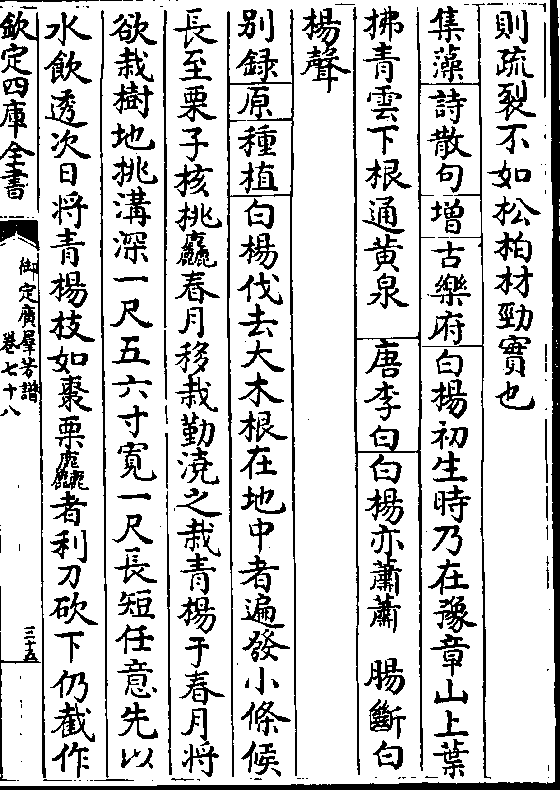 則疏裂不如松柏材勁實也
集藻詩散句增古樂府白楊初生時乃在豫章山上葉
拂青雲下根通黄泉 唐李白白楊亦蕭蕭 腸斷白
楊聲
别録原種植白楊伐去大木根在地中者遍發小條候
長至栗子核桃麤春月移栽勤澆之栽青楊于春月將
欲栽樹地挑溝深一尺五六寸寛一尺長短任意先以
水飲透次日將青楊枝如棗栗麤者利刀砍下仍截作
欽定四庫全書
御定廣羣芳譜
卷七十八
三十五